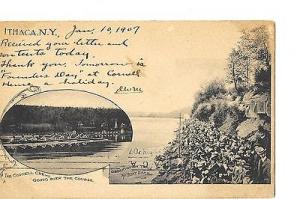 ITHACA, N.Y.
Jan. 10, 1907
Received your letter and
contents today.
Thank you. Tomorrow is
"Founders Day" at Cornell
Hence a holiday
THE CORNELL CREW
GOING OVER THE COURSE.